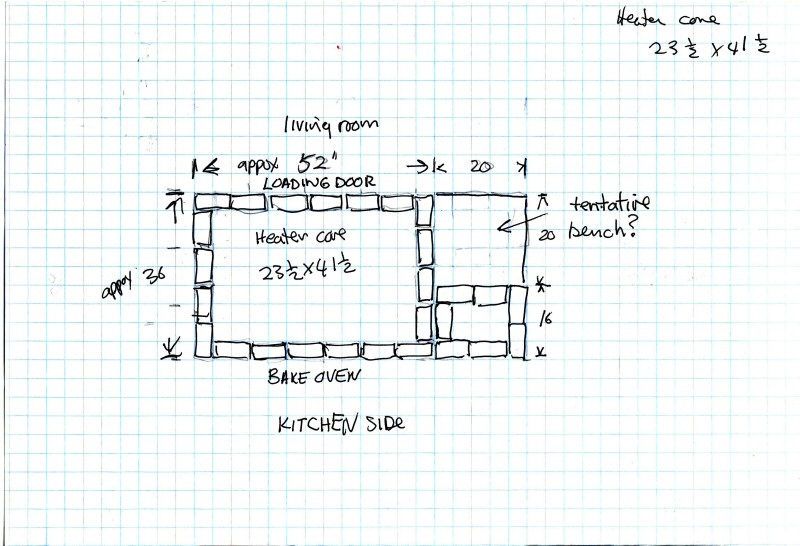 Heater core
23 ½ x 41 ½
living room
appox 52"
20
LOADING DOOR
tentative
bench?
20
Heater core
23½ x 41½
appox 36
16
BAKE OVEN
KITCHEN SIDE